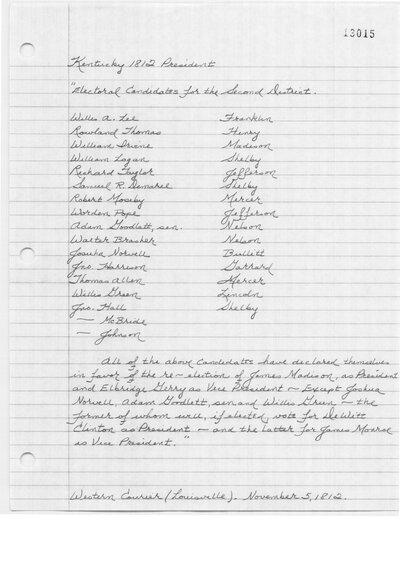 13015
Kentucky 1812 President
"Electoral Candidates for the Second District.
Willis A. Lee Franklin
Rowland Thomas Henry
William Irvine Madison
William Logan Shelby
Richard Taylor Jefferson
Samuel R. Demaree Shelby
Robert Moseby Mercer
Worden Pope Jefferson
Adam Goodlett, sen. Nelson
Walter Brasher Nelson
Joshua Norvell Bullitt
Jno. Harrison Garrard
Thomas Allen Mercer
Willis Green Lincoln
Jno. Hall Shelby
— McBride
— Johnson
All of the above Candidates have declared themselves
in favor of the re-election of James Madison, as President
and Elbridge Gerry as Vice President — Except Joshua
Norvell, Adam Goodlett, sen. and Willis Green — the
former of whom will, if elected, vote for DeWitt
Clinton as President — and the latter for James Monroe
as Vice President."
Western Courier (Louisville). November 5, 1812.